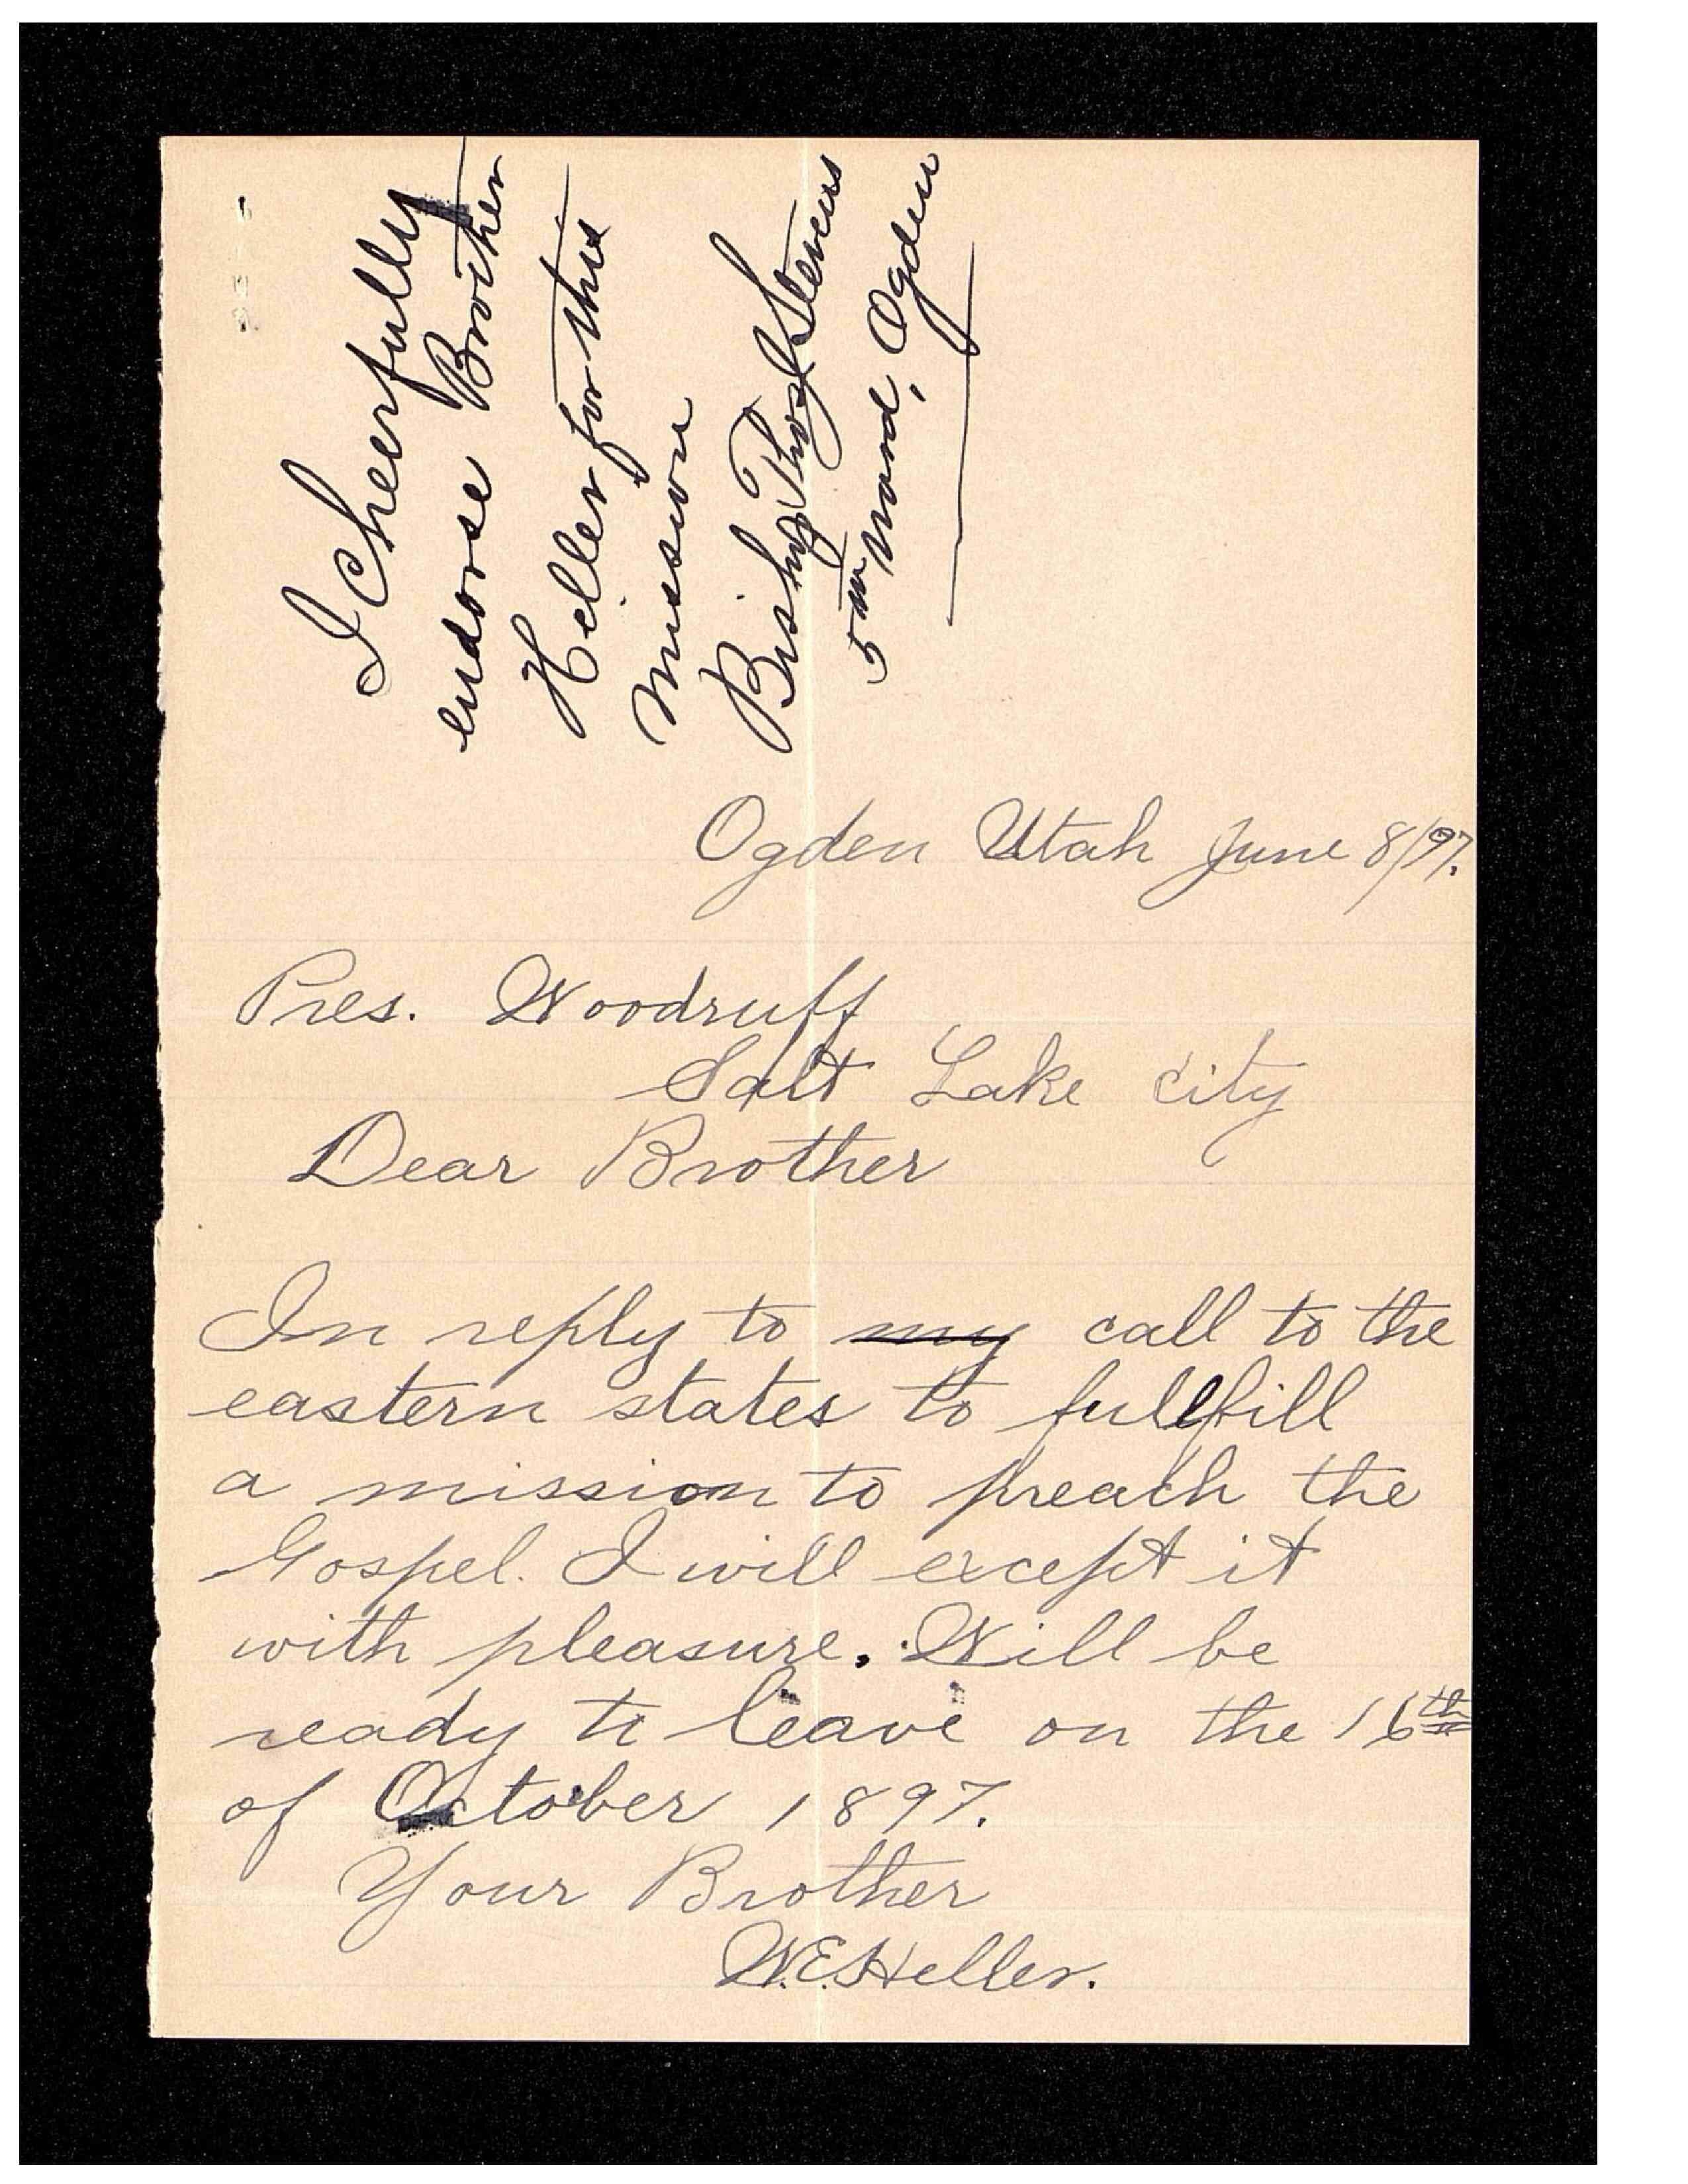 I cheerfully
endorse Brother
Heller for this
mission
Bishop Thos J Stevens
5th Ward, Ogden
Ogden Utah June 8/97.
Pres. Woodruff
Salt Lake City
Dear Brother
In reply to my call to the
eastern states to fullfill
a mission to preach the
Gospel. I will except it
with pleasure. Will be
ready to leave on the 16th
of October 1897.
Your Brother
W.E. Heller.